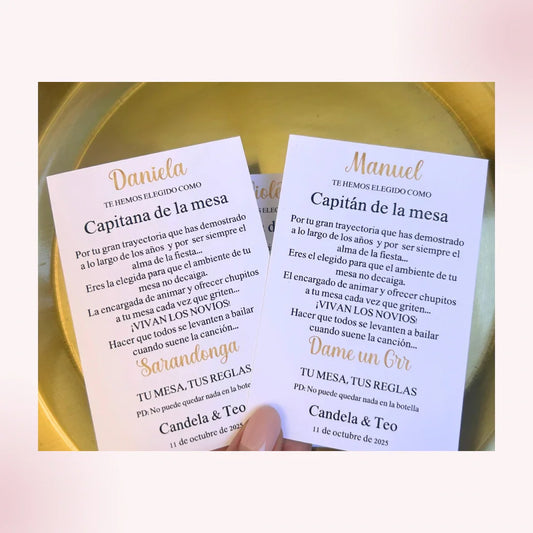 Daniela
TE HEMOS ELEGIDO COMO
Capitana de la mesa
Por tu gran trayectoria que has demostrado
a lo largo de los años y por ser siempre el
alma de la fiesta...
Eres la elegida para que el ambiente de tu
mesa no decaiga.
La encargada de animar y ofrecer chupitos
a tu mesa cada vez que griten...
¡VIVAN LOS NOVIOS!
Hacer que todos se levanten a bailar
cuando suene la canción...
Sarandonga
TU MESA, TUS REGLAS
PD: No puede quedar nada en la botella
Candela & Teo
11 de octubre de 2025
Manuel
TE HEMOS ELEGIDO COMO
Capitán de la mesa
Por tu gran trayectoria que has demostrado
a lo largo de los años y por ser siempre el
alma de la fiesta...
Eres el elegido para que el ambiente de tu
mesa no decaiga.
El encargado de animar y ofrecer chupitos
a tu mesa cada vez que griten...
¡VIVAN LOS NOVIOS!
Hacer que todos se levanten a bailar
cuando suene la canción...
Dame un Grr
TU MESA, TUS REGLAS
PD: No puede quedar nada en la botella
Candela & Teo
11 de octubre de 2025